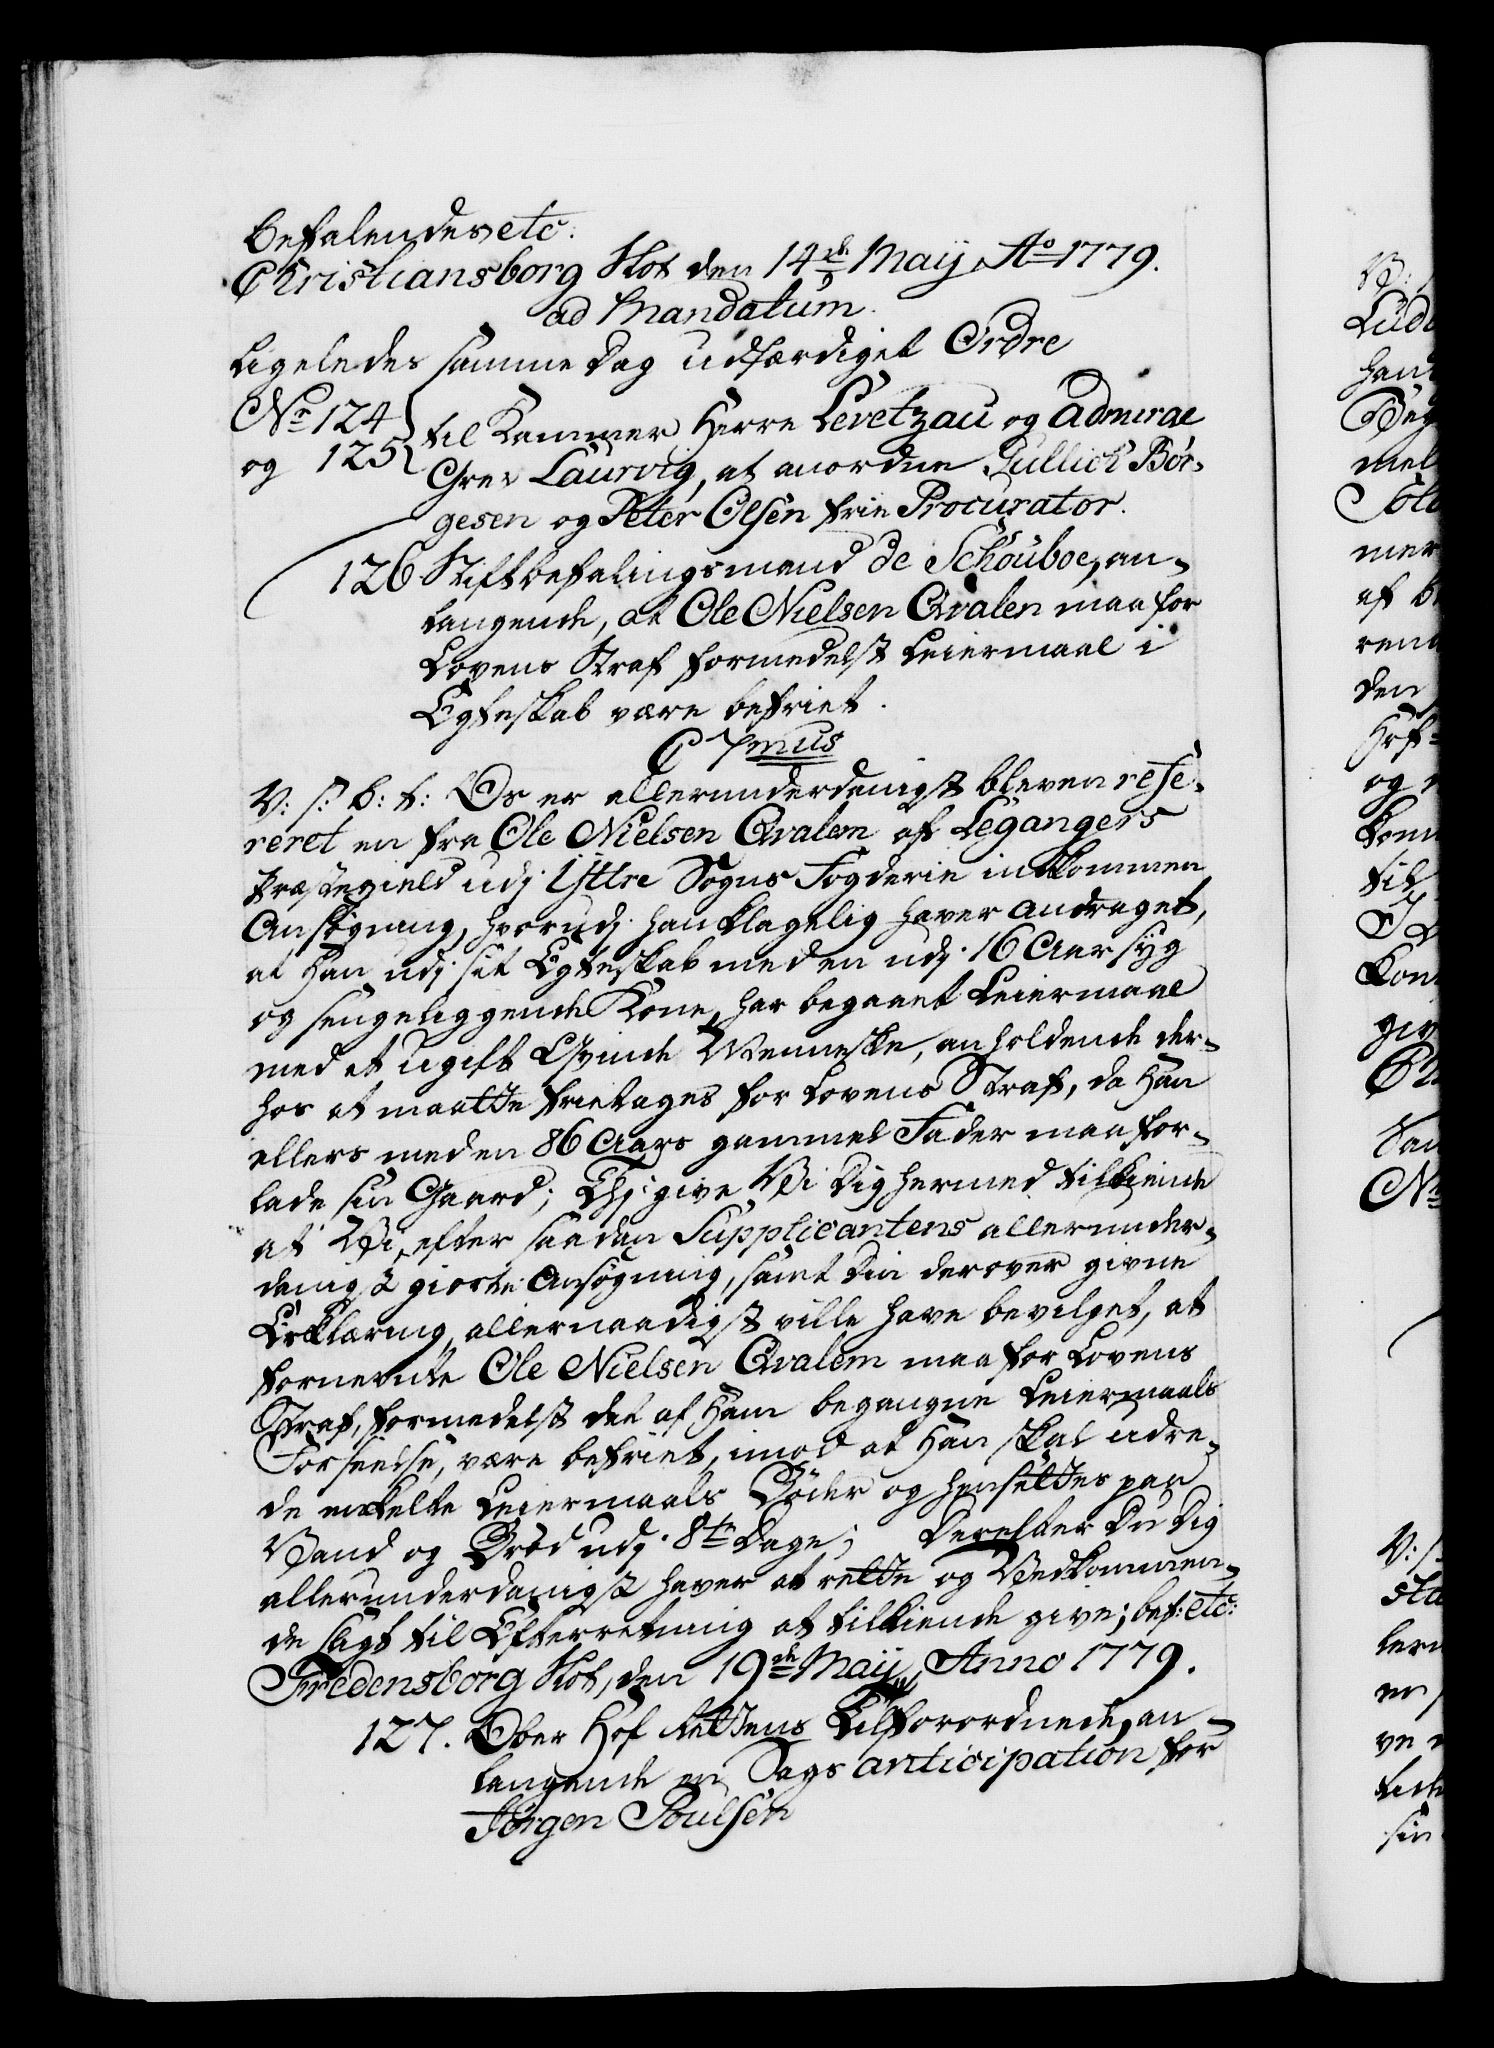 befalendes etc:
Christiansborg Slot den 14de Maij Ao 1779.
ad Mandatum.
Ligeledes samme Dag udfærdiget Ordre
No 124
og 125
til Kammer Herre Levetzau og Admiral
Grev Laurvig, at anordne Gullich Bør-
gesen og Peter Olsen frie Procurator.
126 Stiftbefalingsmand de Schouboe, an-
langende, at Ole Nielsen Qvalen maa for
Lovens Straf formedelst Leiermaal i
Egteskab være befriet.
C 7mus
V: s: b: t: Os er allerunderdanigst bleven refe-
reret en fra Ole Nielsen Qvalem af Legangers
Præstegield udj Yttre Sogns Fogderie indkommen
Ansøgning, hvorudj han klagelig haver andraget,
at han udj sit Egteskab med en udj 16 Aar syg
og sengeliggende Kone, har begaaet Leiermaal
med et ugift Qvinde Menneske, anholdende der-
hos at maatte fritages for Lovens Straf, da han
ellers med en 86 Aars gammel Fader maa for-
lade sin Gaard; Thj give Vi Dig hermed tilkiende
at Vi, efter saadan Supplicantens allerunder-
danigst giorte Ansøgning, samt Din derover givne
Erklæring, allernaadigst ville have bevilget, at
fornevnte Ole Nielsen Qvalem maa for Lovens
Straf, formedelst det af ham begangne Leiermaals
Forseelse, være befriet, imod at han skal udre-
de enkelte Leiermaals Bøder og hensættes paa
Vand og Brød udj 8te Dage; Derefter Du Dig
allerunderdanigst haver at rette og Vedkommen-
de sligt til Efterretning at tilkiende give; bef: etc:
Fredensborg Slot, den 19de Maij Anno 1779.
127. Ober Hof Rettens Tilforordnede, an-
langende en Sags anticipation for
Jørgen Poulsen